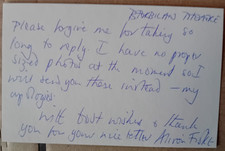 BARBICAN THEATRE
Please forgive me for taking so
long to reply I have no proper
sized photos at the moment so I
will send you these instead – my
apologies.
With best wishes & thank
you for your nice letter